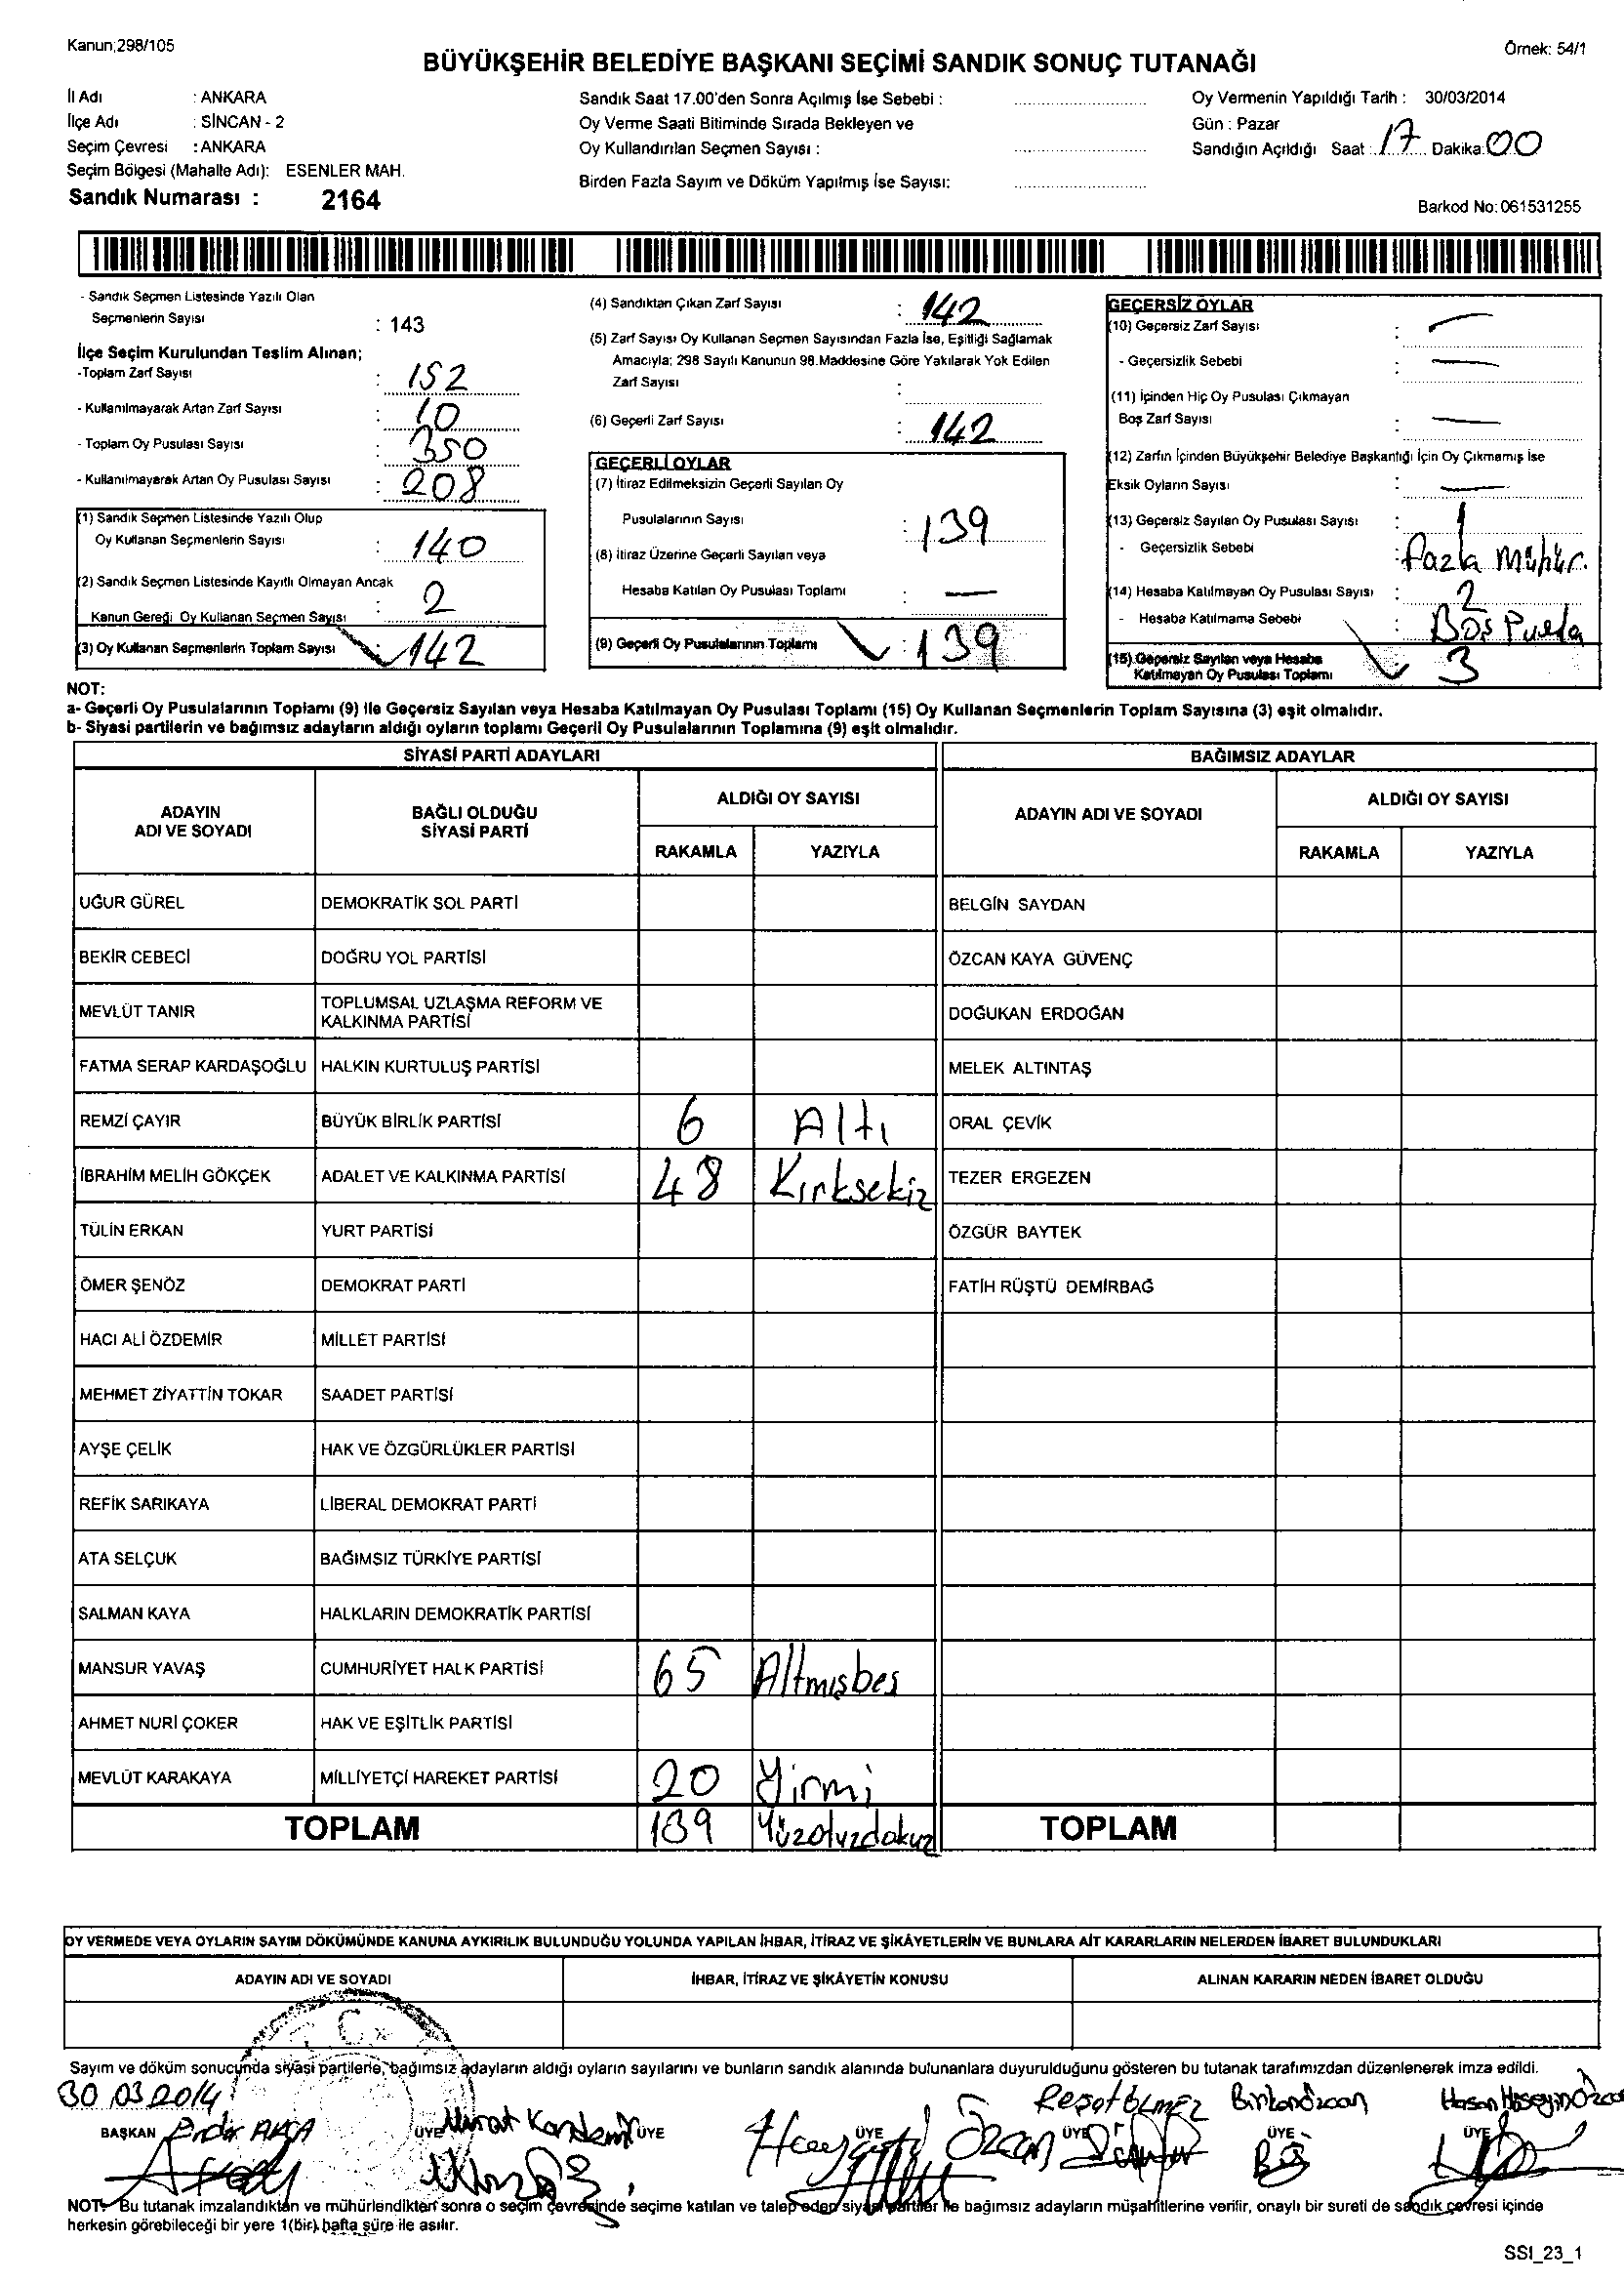 Kanun;298/105
Örnek: 54/1
BÜYÜKŞEHİR BELEDİYE BAŞKANI SEÇİMİ SANDIK SONUÇ TUTANAĞI
İl Adı : ANKARA
İlçe Adı : SİNCAN - 2
Seçim Çevresi : ANKARA
Seçim Bölgesi (Mahalle Adı): ESENLER MAH.
Sandık Numarası : 2164
Sandık Saat 17.00'den Sonra Açılmış İse Sebebi :
Oy Verme Saati Bitiminde Sırada Bekleyen ve
Oy Kullandırılan Seçmen Sayısı :
Birden Fazla Sayım ve Döküm Yapılmış İse Sayısı:
Oy Vermenin Yapıldığı Tarih : 30/03/2014
Gün : Pazar
Sandığın Açıldığı Saat : 17 Dakika: 00
Barkod No: 061531255
- Sandık Seçmen Listesinde Yazılı Olan
Seçmenlerin Sayısı : 143
İlçe Seçim Kurulundan Teslim Alınan;
-Toplam Zarf Sayısı : 152
- Kullanılmayarak Artan Zarf Sayısı : 10
- Toplam Oy Pusulası Sayısı : 350
- Kullanılmayarak Artan Oy Pusulası Sayısı : 208
(1) Sandık Seçmen Listesinde Yazılı Olup
Oy Kullanan Seçmenlerin Sayısı : 140
(2) Sandık Seçmen Listesinde Kayıtlı Olmayan Ancak
Kanun Gereği Oy Kullanan Seçmen Sayısı : 2
(3) Oy Kullanan Seçmenlerin Toplam Sayısı 142
(4) Sandıktan Çıkan Zarf Sayısı : 142
(5) Zarf Sayısı Oy Kullanan Seçmen Sayısından Fazla İse, Eşitliği Sağlamak
Amacıyla; 298 Sayılı Kanunun 98.Maddesine Göre Yakılarak Yok Edilen
Zarf Sayısı :
(6) Geçerli Zarf Sayısı : 142
GEÇERLİ OYLAR
(7) İtiraz Edilmeksizin Geçerli Sayılan Oy
Pusulalarının Sayısı : 139
(8) İtiraz Üzerine Geçerli Sayılan veya
Hesaba Katılan Oy Pusulası Toplamı : —
(9) Geçerli Oy Pusulalarının Toplamı : 139
GEÇERSİZ OYLAR
(10) Geçersiz Zarf Sayısı : —
- Geçersizlik Sebebi : —
(11) İçinden Hiç Oy Pusulası Çıkmayan
Boş Zarf Sayısı : —
(12) Zarfın İçinden Büyükşehir Belediye Başkanlığı İçin Oy Çıkmamış İse
Eksik Oyların Sayısı : —
(13) Geçersiz Sayılan Oy Pusulası Sayısı : 1
- Geçersizlik Sebebi : Fazla Mühür.
(14) Hesaba Katılmayan Oy Pusulası Sayısı : 2
- Hesaba Katılmama Sebebi : Boş Pusula
(15) Geçersiz Sayılan veya Hesaba
Katılmayan Oy Pusulası Toplamı 3
NOT:
a- Geçerli Oy Pusulalarının Toplamı (9) İle Geçersiz Sayılan veya Hesaba Katılmayan Oy Pusulası Toplamı (15) Oy Kullanan Seçmenlerin Toplam Sayısına (3) eşit olmalıdır.
b- Siyasi partilerin ve bağımsız adayların aldığı oyların toplamı Geçerli Oy Pusulalarının Toplamına (9) eşit olmalıdır.
SİYASİ PARTİ ADAYLARI
BAĞIMSIZ ADAYLAR
ADAYIN ADI VE SOYADI
BAĞLI OLDUĞU SİYASİ PARTİ
ALDIĞI OY SAYISI
RAKAMLA YAZIYLA
ADAYIN ADI VE SOYADI
ALDIĞI OY SAYISI
RAKAMLA YAZIYLA
UĞUR GÜREL DEMOKRATİK SOL PARTİ BELGİN SAYDAN
BEKİR CEBECİ DOĞRU YOL PARTİSİ ÖZCAN KAYA GÜVENÇ
MEVLÜT TANIR TOPLUMSAL UZLAŞMA REFORM VE KALKINMA PARTİSİ DOĞUKAN ERDOĞAN
FATMA SERAP KARDAŞOĞLU HALKIN KURTULUŞ PARTİSİ MELEK ALTINTAŞ
REMZİ ÇAYIR BÜYÜK BİRLİK PARTİSİ 6 Altı ORAL ÇEVİK
İBRAHİM MELİH GÖKÇEK ADALET VE KALKINMA PARTİSİ 48 Kırksekiz TEZER ERGEZEN
TÜLİN ERKAN YURT PARTİSİ ÖZGÜR BAYTEK
ÖMER ŞENÖZ DEMOKRAT PARTİ FATİH RÜŞTÜ DEMİRBAĞ
HACI ALİ ÖZDEMİR MİLLET PARTİSİ
MEHMET ZİYATTİN TOKAR SAADET PARTİSİ
AYŞE ÇELİK HAK VE ÖZGÜRLÜKLER PARTİSİ
REFİK SARIKAYA LİBERAL DEMOKRAT PARTİ
ATA SELÇUK BAĞIMSIZ TÜRKİYE PARTİSİ
SALMAN KAYA HALKLARIN DEMOKRATİK PARTİSİ
MANSUR YAVAŞ CUMHURİYET HALK PARTİSİ 65 Altmışbeş
AHMET NURİ ÇOKER HAK VE EŞİTLİK PARTİSİ
MEVLÜT KARAKAYA MİLLİYETÇİ HAREKET PARTİSİ 20 Yirmi
TOPLAM 139 Yüzotuzdokuz TOPLAM
OY VERMEDE VEYA OYLARIN SAYIM DÖKÜMÜNDE KANUNA AYKIRILIK BULUNDUĞU YOLUNDA YAPILAN İHBAR, İTİRAZ VE ŞİKÂYETLERİN VE BUNLARA AİT KARARLARIN NELERDEN İBARET BULUNDUKLARI
ADAYIN ADI VE SOYADI İHBAR, İTİRAZ VE ŞİKÂYETİN KONUSU ALINAN KARARIN NEDEN İBARET OLDUĞU
Sayım ve döküm sonucunda siyasi partilerle, bağımsız adayların aldığı oyların sayılarını ve bunların sandık alanında bulunanlara duyurulduğunu gösteren bu tutanak tarafımızdan düzenlenerek imza edildi.
30.03.2014
BAŞKAN ÜYE Murat ÜYE ÜYE Özcan ÜYE ÜYE ÜYE Hasan Hüseyin
NOT: Bu tutanak imzalandıktan ve mühürlendikten sonra o seçim çevresinde seçime katılan ve talep eden siyasi partiler ile bağımsız adayların müşahitlerine verilir, onaylı bir sureti de sandık çevresi içinde
herkesin görebileceği bir yere 1(bir) hafta süre ile asılır.
SSI_23_1